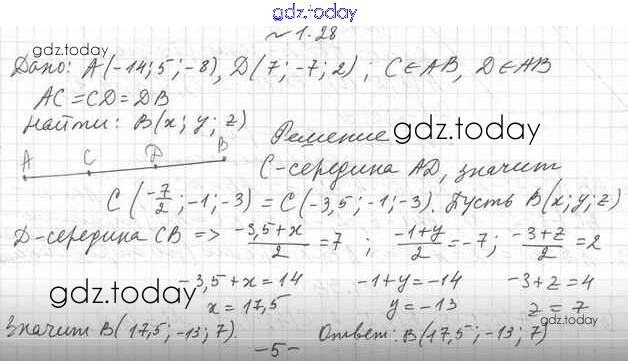 gdz.today
№ 1.28
gdz.today
Дано: A(-14; 5; -8), D(7; -7; 2); C∈AB, D∈AB
AC = CD = DB
Найти: B(x; y; z)
Решение
gdz.today
A C D B
C-середина AD, значит
C(-7/2; -1; -3) = C(-3,5; -1; -3). Пусть B(x; y; z)
D-середина CB => (-3,5+x)/2 = 7; (-1+y)/2 = -7; (-3+z)/2 = 2
-3,5+x = 14 -1+y = -14 -3+z = 4
gdz.today
x = 17,5 y = -13 z = 7
gdz.today
Значит B(17,5; -13; 7). Ответ: B(17,5; -13; 7)
-5-